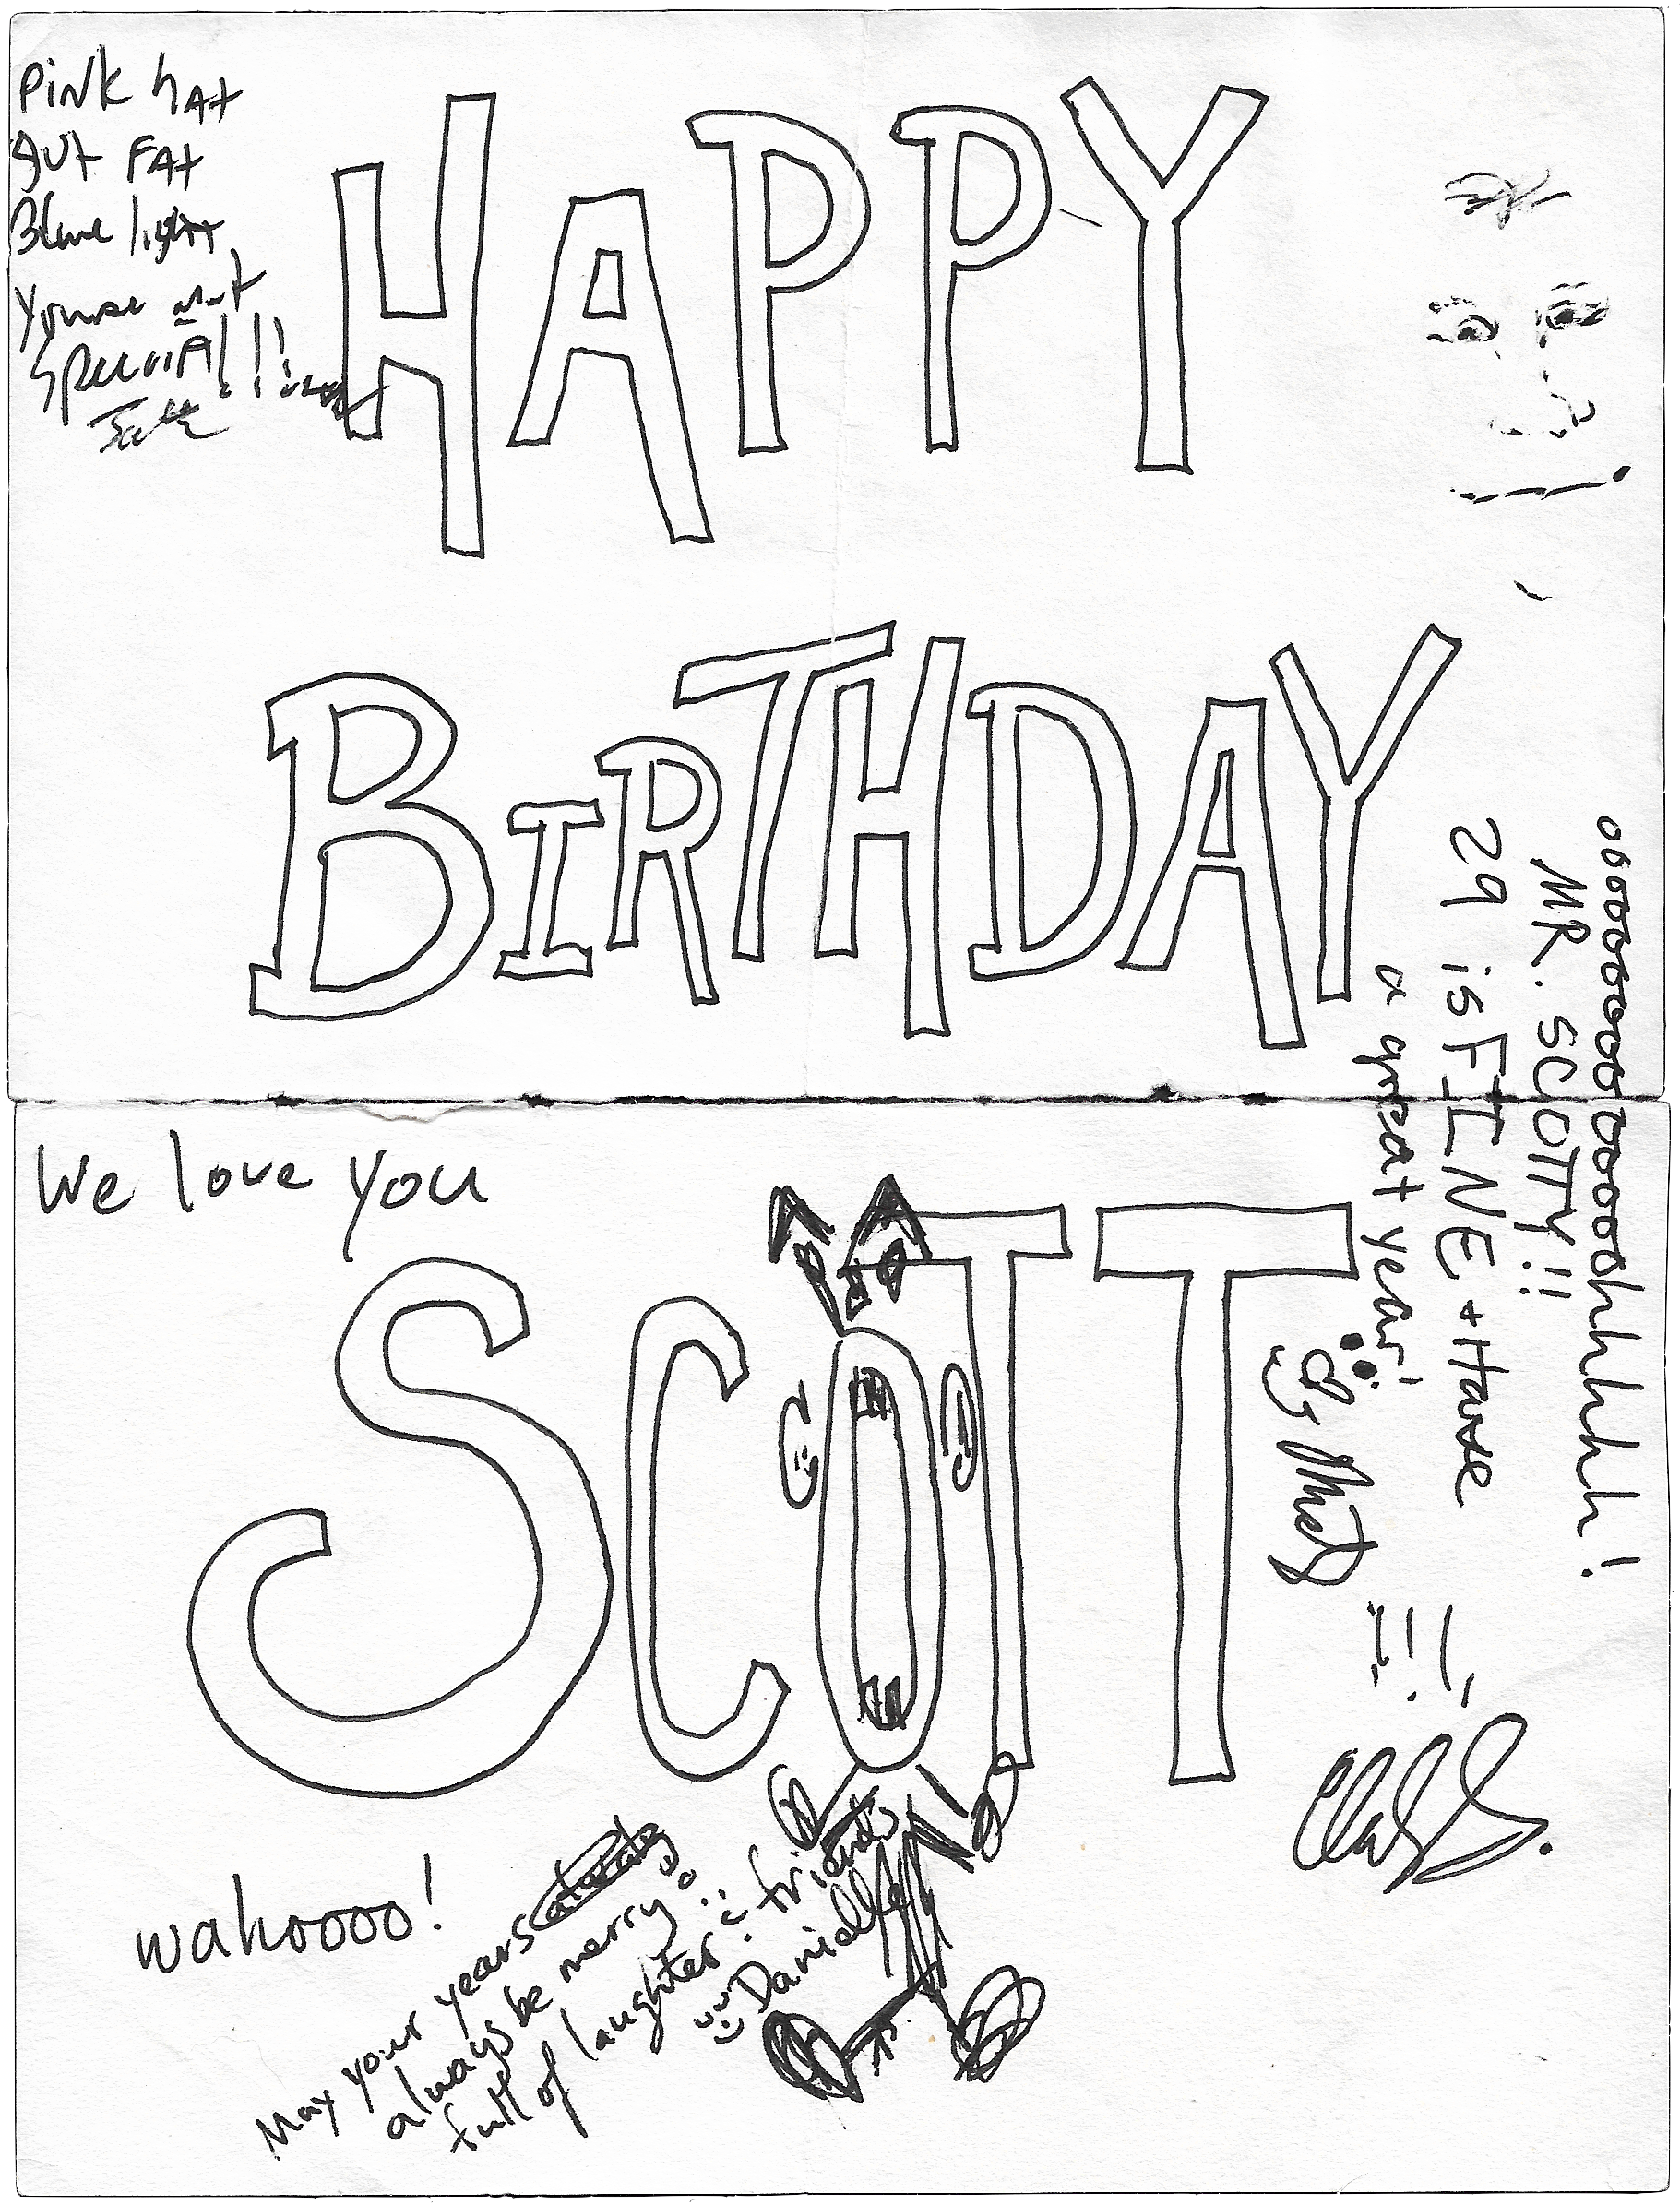 Pink hat
gut fat
Blue light
Youre not
special!!!
HAPPY
BIRTHDAY
oooooooooooooooooooohhhhhhh!
MR. SCOTTY!!
29 is FINE + Have
a great year!
We love you
SCOTT
wahoooo!
May your years
always be merry &
full of laughter & friends
Danielle